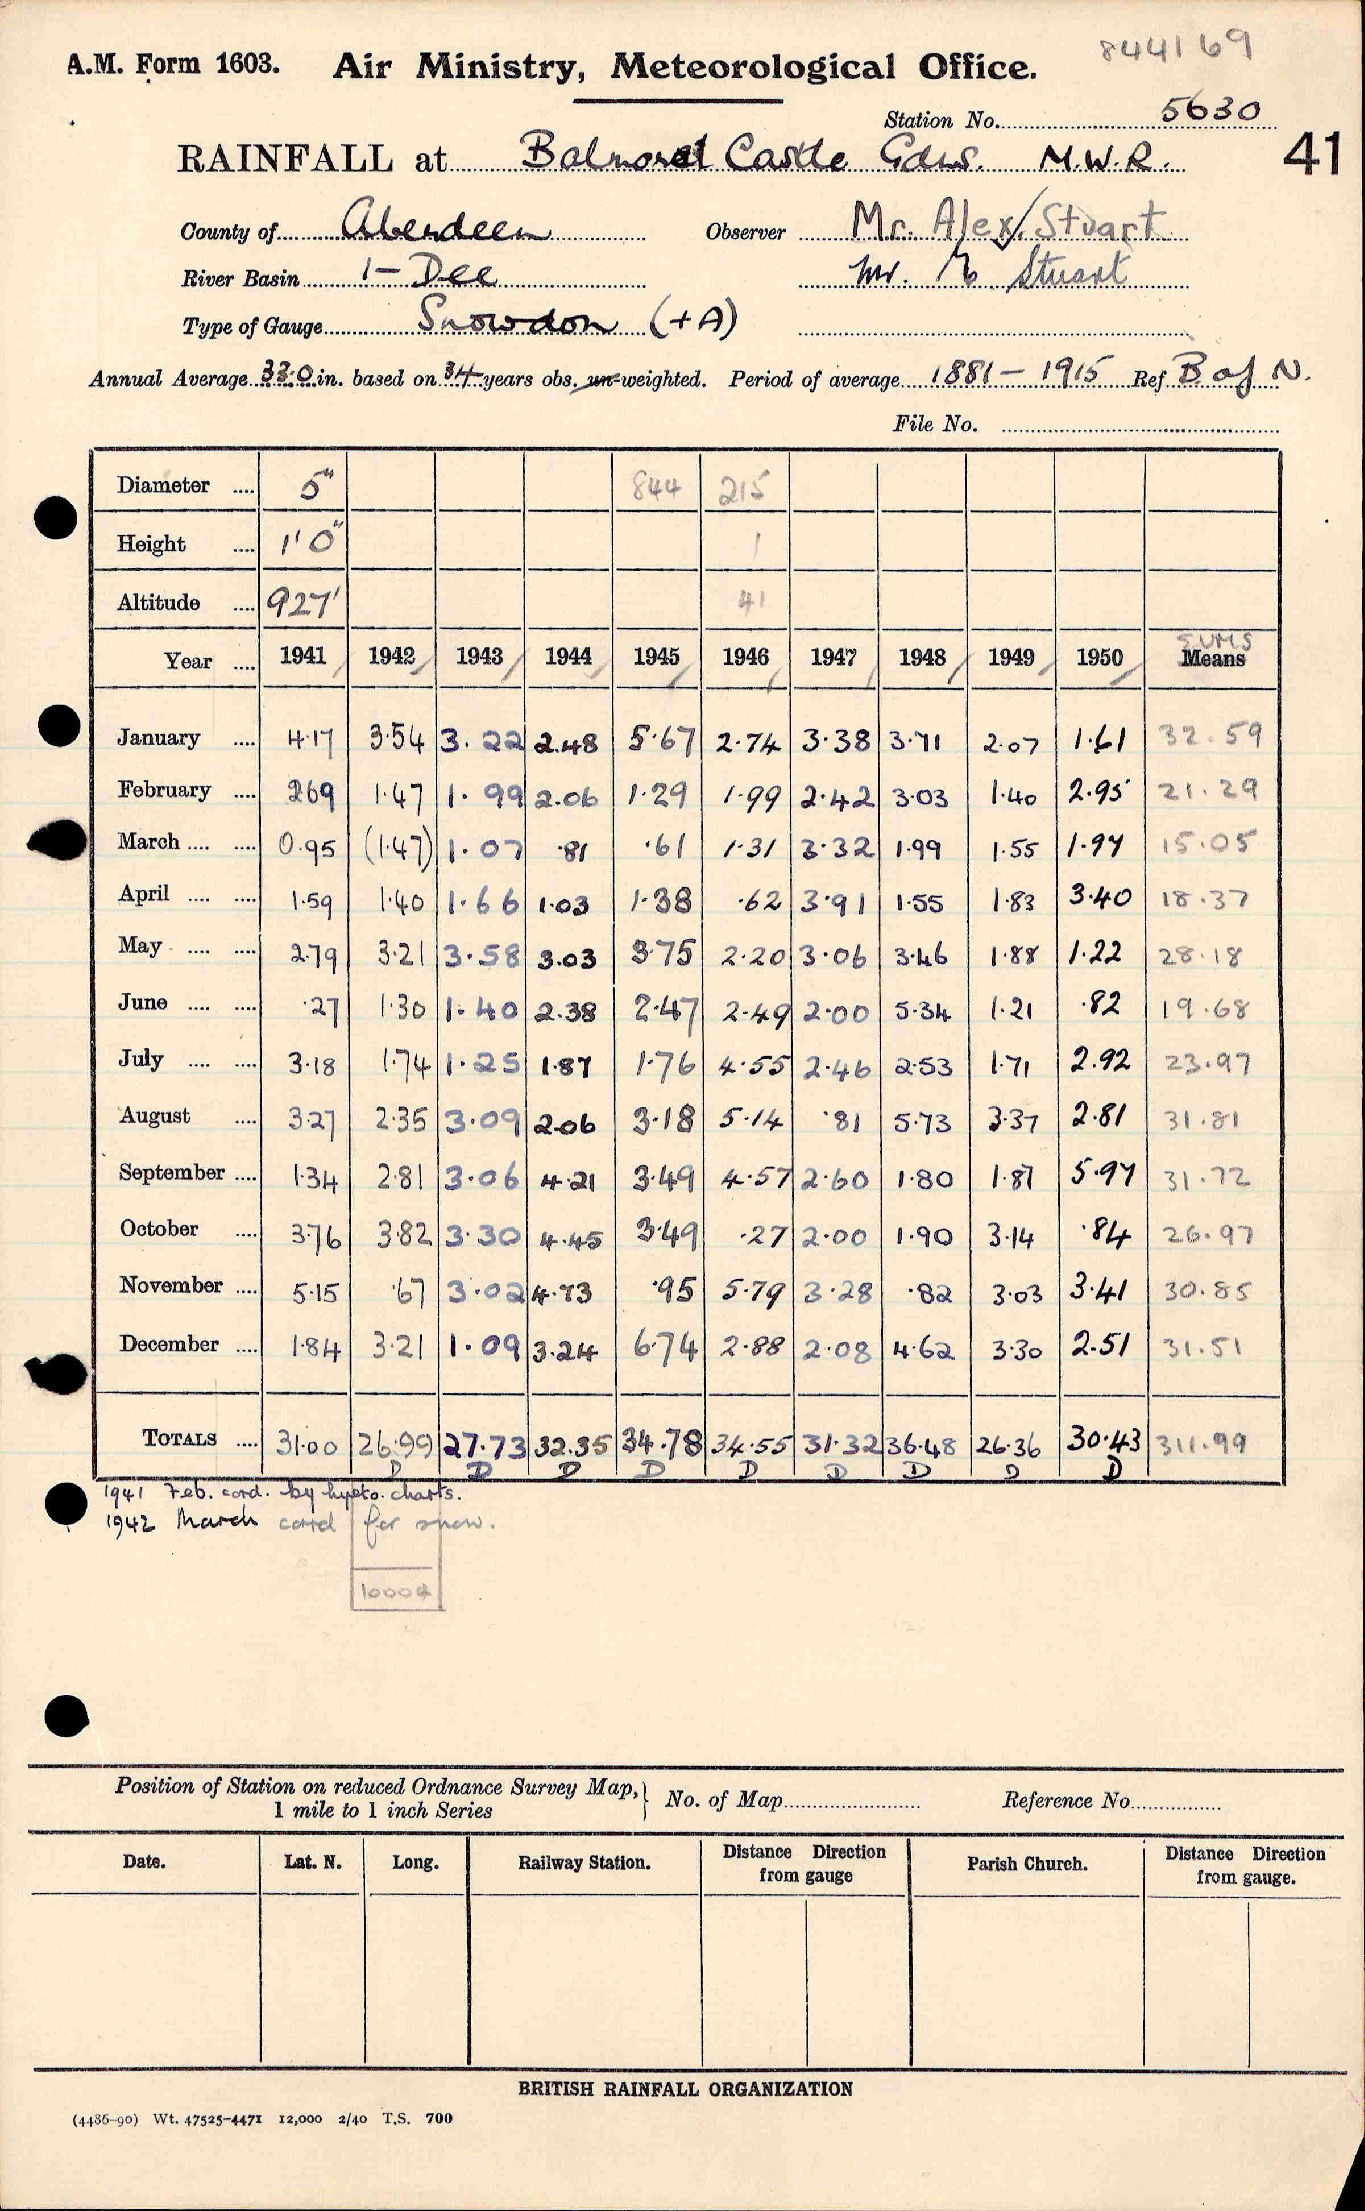 844169
A.M. Form 1603. Air Ministry, Meteorological Office.
Station No. 5630
RAINFALL at Balmoral Castle Gdns. M.W.R. 41
County of Aberdeen Observer Mr. Alex. Stuart
River Basin 1 - Dee Mr. E Stuart
Type of Gauge Snowdon (+A)
Annual Average 33.0 in. based on 34 years obs. un-weighted. Period of average 1881 - 1915 Ref B of N.
File No.
Diameter .... 5" 844 215
Height .... 1' 0" 1
Altitude .... 927' 41
SUMS
Year .... 1941 1942 1943 1944 1945 1946 1947 1948 1949 1950 Means
January .... 4.17 3.54 3.22 2.48 5.67 2.74 3.38 3.71 2.07 1.61 32.59
February .... 2.69 1.47 1.99 2.06 1.29 1.99 2.42 3.03 1.40 2.95 21.29
March .... .... 0.95 (1.47) 1.07 .81 .61 1.31 3.32 1.99 1.55 1.97 15.05
April .... .... 1.59 1.40 1.66 1.03 1.38 .62 3.91 1.55 1.83 3.40 18.37
May .... .... 2.79 3.21 3.58 3.03 3.75 2.20 3.06 3.46 1.88 1.22 28.18
June .... .... .27 1.30 1.40 2.38 2.47 2.49 2.00 5.34 1.21 .82 19.68
July .... .... 3.18 1.74 1.25 1.87 1.76 4.55 2.46 2.53 1.71 2.92 23.97
August .... 3.27 2.35 3.09 2.06 3.18 5.14 .81 5.73 3.37 2.81 31.81
September .... 1.34 2.81 3.06 4.21 3.49 4.57 2.60 1.80 1.87 5.97 31.72
October .... 3.76 3.82 3.30 4.45 3.49 .27 2.00 1.90 3.14 .84 26.97
November .... 5.15 .67 3.02 4.73 .95 5.79 3.28 .82 3.03 3.41 30.85
December .... 1.84 3.21 1.09 3.24 6.74 2.88 2.08 4.62 3.30 2.51 31.51
TOTALS .... 31.00 26.99 27.73 32.35 34.78 34.55 31.32 36.48 26.36 30.43 311.99
D D D D D D D D D
1941 Feb. cord. by hyeto. charts.
1942 March corrd for snow.
10004
Position of Station on reduced Ordnance Survey Map,} No. of Map Reference No.
1 mile to 1 inch Series
Date. Lat. N. Long. Railway Station. Distance Direction from gauge Parish Church. Distance Direction from gauge.
BRITISH RAINFALL ORGANIZATION
(4486-90) Wt. 47525-4471 12,000 2/40 T.S. 700